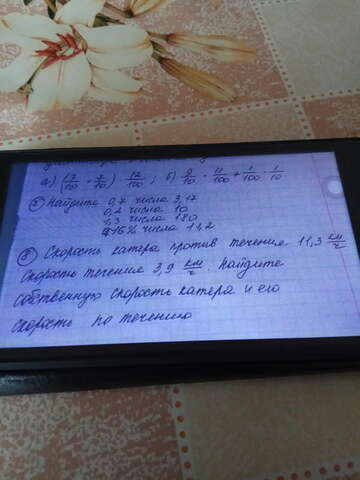 а) (17/10 + 7/10) · 12/100 ; б) 9/10 · 11/100 + 1/100 · 1/10
Найдите 0,7 числа 3,17
0,2 числа 10
числа 180
16% числа 11,2
⑧ Скорость катера против течения 11,3 км/ч
Скорость течения 3,9 км/ч. Найдите
собственную скорость катера и его
скорость по течению